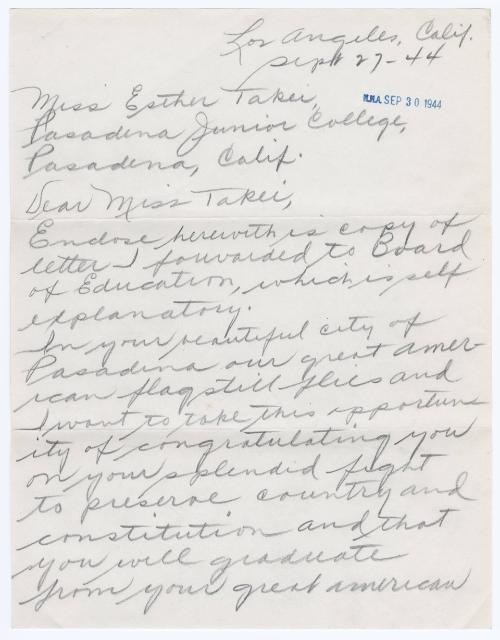 Los Angeles, Calif.
Sept 27-44
Miss Esther Takei,
H.H.A. SEP 30 1944
Pasadena Junior College,
Pasadena, Calif.
Dear Miss Takei,
Enclose herewith is copy of
letter I forwarded to Board
of Education, which is self
explanatory.
In your beautiful city of
Pasadena our great amer-
ican flag still flies and
I want to take this opportun
ity of congratulating you
on your splendid fight
to preserve country and
constitution and that
you will graduate
from your great american